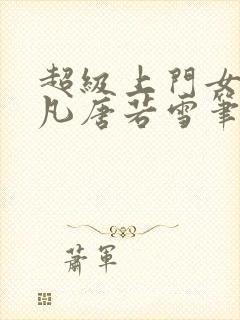 超級上門女
凡唐若雪筆
蕭軍